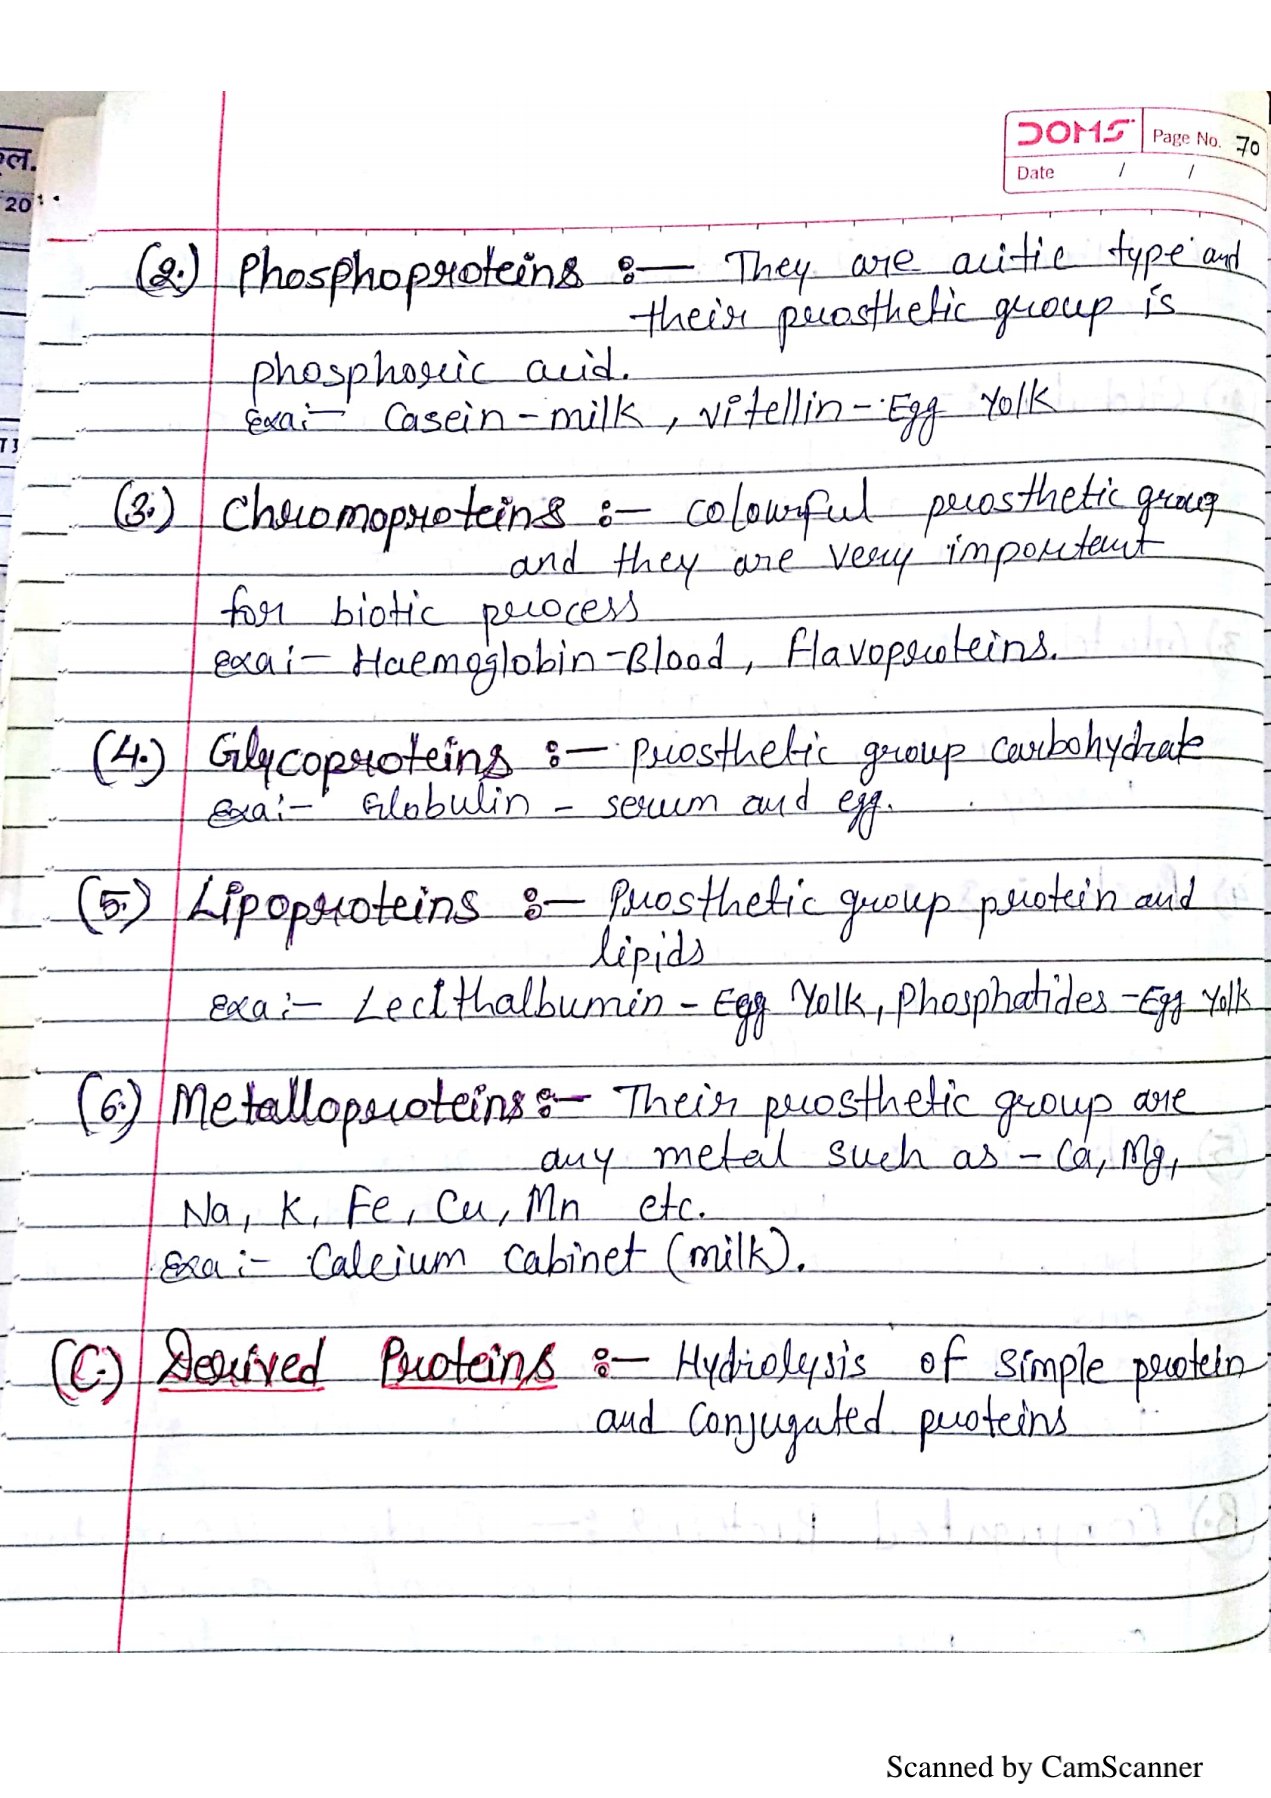 ूल.
20
DOMS Page No. 70
Date / /
(2.) Phosphoproteins :— They are acitic type and
their prosthetic group is
phosphoric acid.
Exa:— Casein - milk, Vitellin - Egg Yolk
(3.) Chromoproteins :— colourful prosthetic group
and they are very important
for biotic process
exa:— Haemoglobin - Blood, Flavoproteins.
(4.) Glycoproteins :— Prosthetic group carbohydrate
Exa:— Globulin - serum and egg.
(5.) Lipoproteins :— Prosthetic group protein and
lipids
exa:— Lecithalbumin - Egg Yolk, Phosphatides - Egg Yolk
(6.) Metalloproteins :— Their prosthetic group are
any metal such as - Ca, Mg,
Na, K, Fe, Cu, Mn etc.
Exa:— Calcium Cabinet (milk).
(C.) Derived Proteins :— Hydrolysis of simple protein
and Conjugated proteins
Scanned by CamScanner